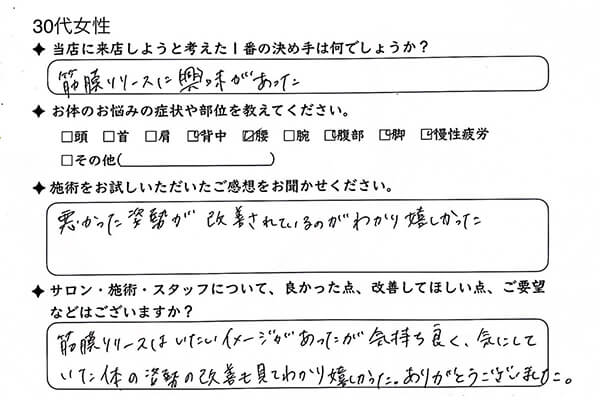 30代女性
✦ 当店に来店しようと考えた1番の決め手は何でしょうか？
筋膜リリースに興味があった
✦ お体のお悩みの症状や部位を教えてください。
□頭 □首 □肩 ☑背中 ☑腰 □腕 ☑腹部 ☑脚 ☑慢性疲労
□その他( )
✦ 施術をお試しいただいたご感想をお聞かせください。
悪かった姿勢が改善されているのがわかり嬉しかった
✦ サロン・施術・スタッフについて、良かった点、改善してほしい点、ご要望
などはございますか？
筋膜リリースはいたいイメージがあったが気持ち良く、気にして
いた体の姿勢の改善も見てわかり嬉しかった。ありがとうございました。